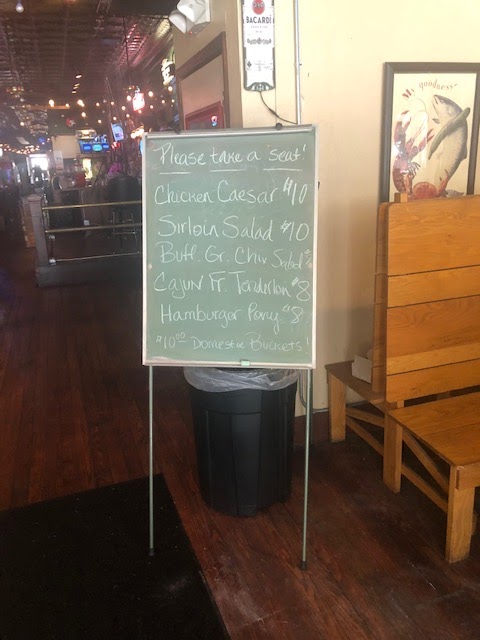 BACARDI
"My goodness"
Please take a 'seat'!
Chicken Caesar $10
Sirloin Salad $10
Buff. Gr. Chix Salad
Cajun Fr. Tenderloin $8
Hamburger Pony $8
$10.00 Domestic Buckets!